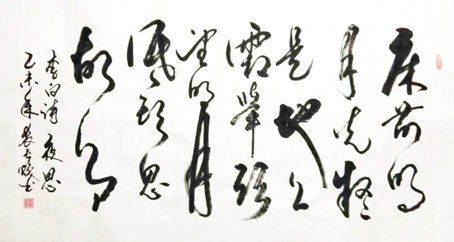 床前明
月光疑
是地上
霜舉頭
望明月
低頭思
故鄉
李白詩 夜思
乙未年 書